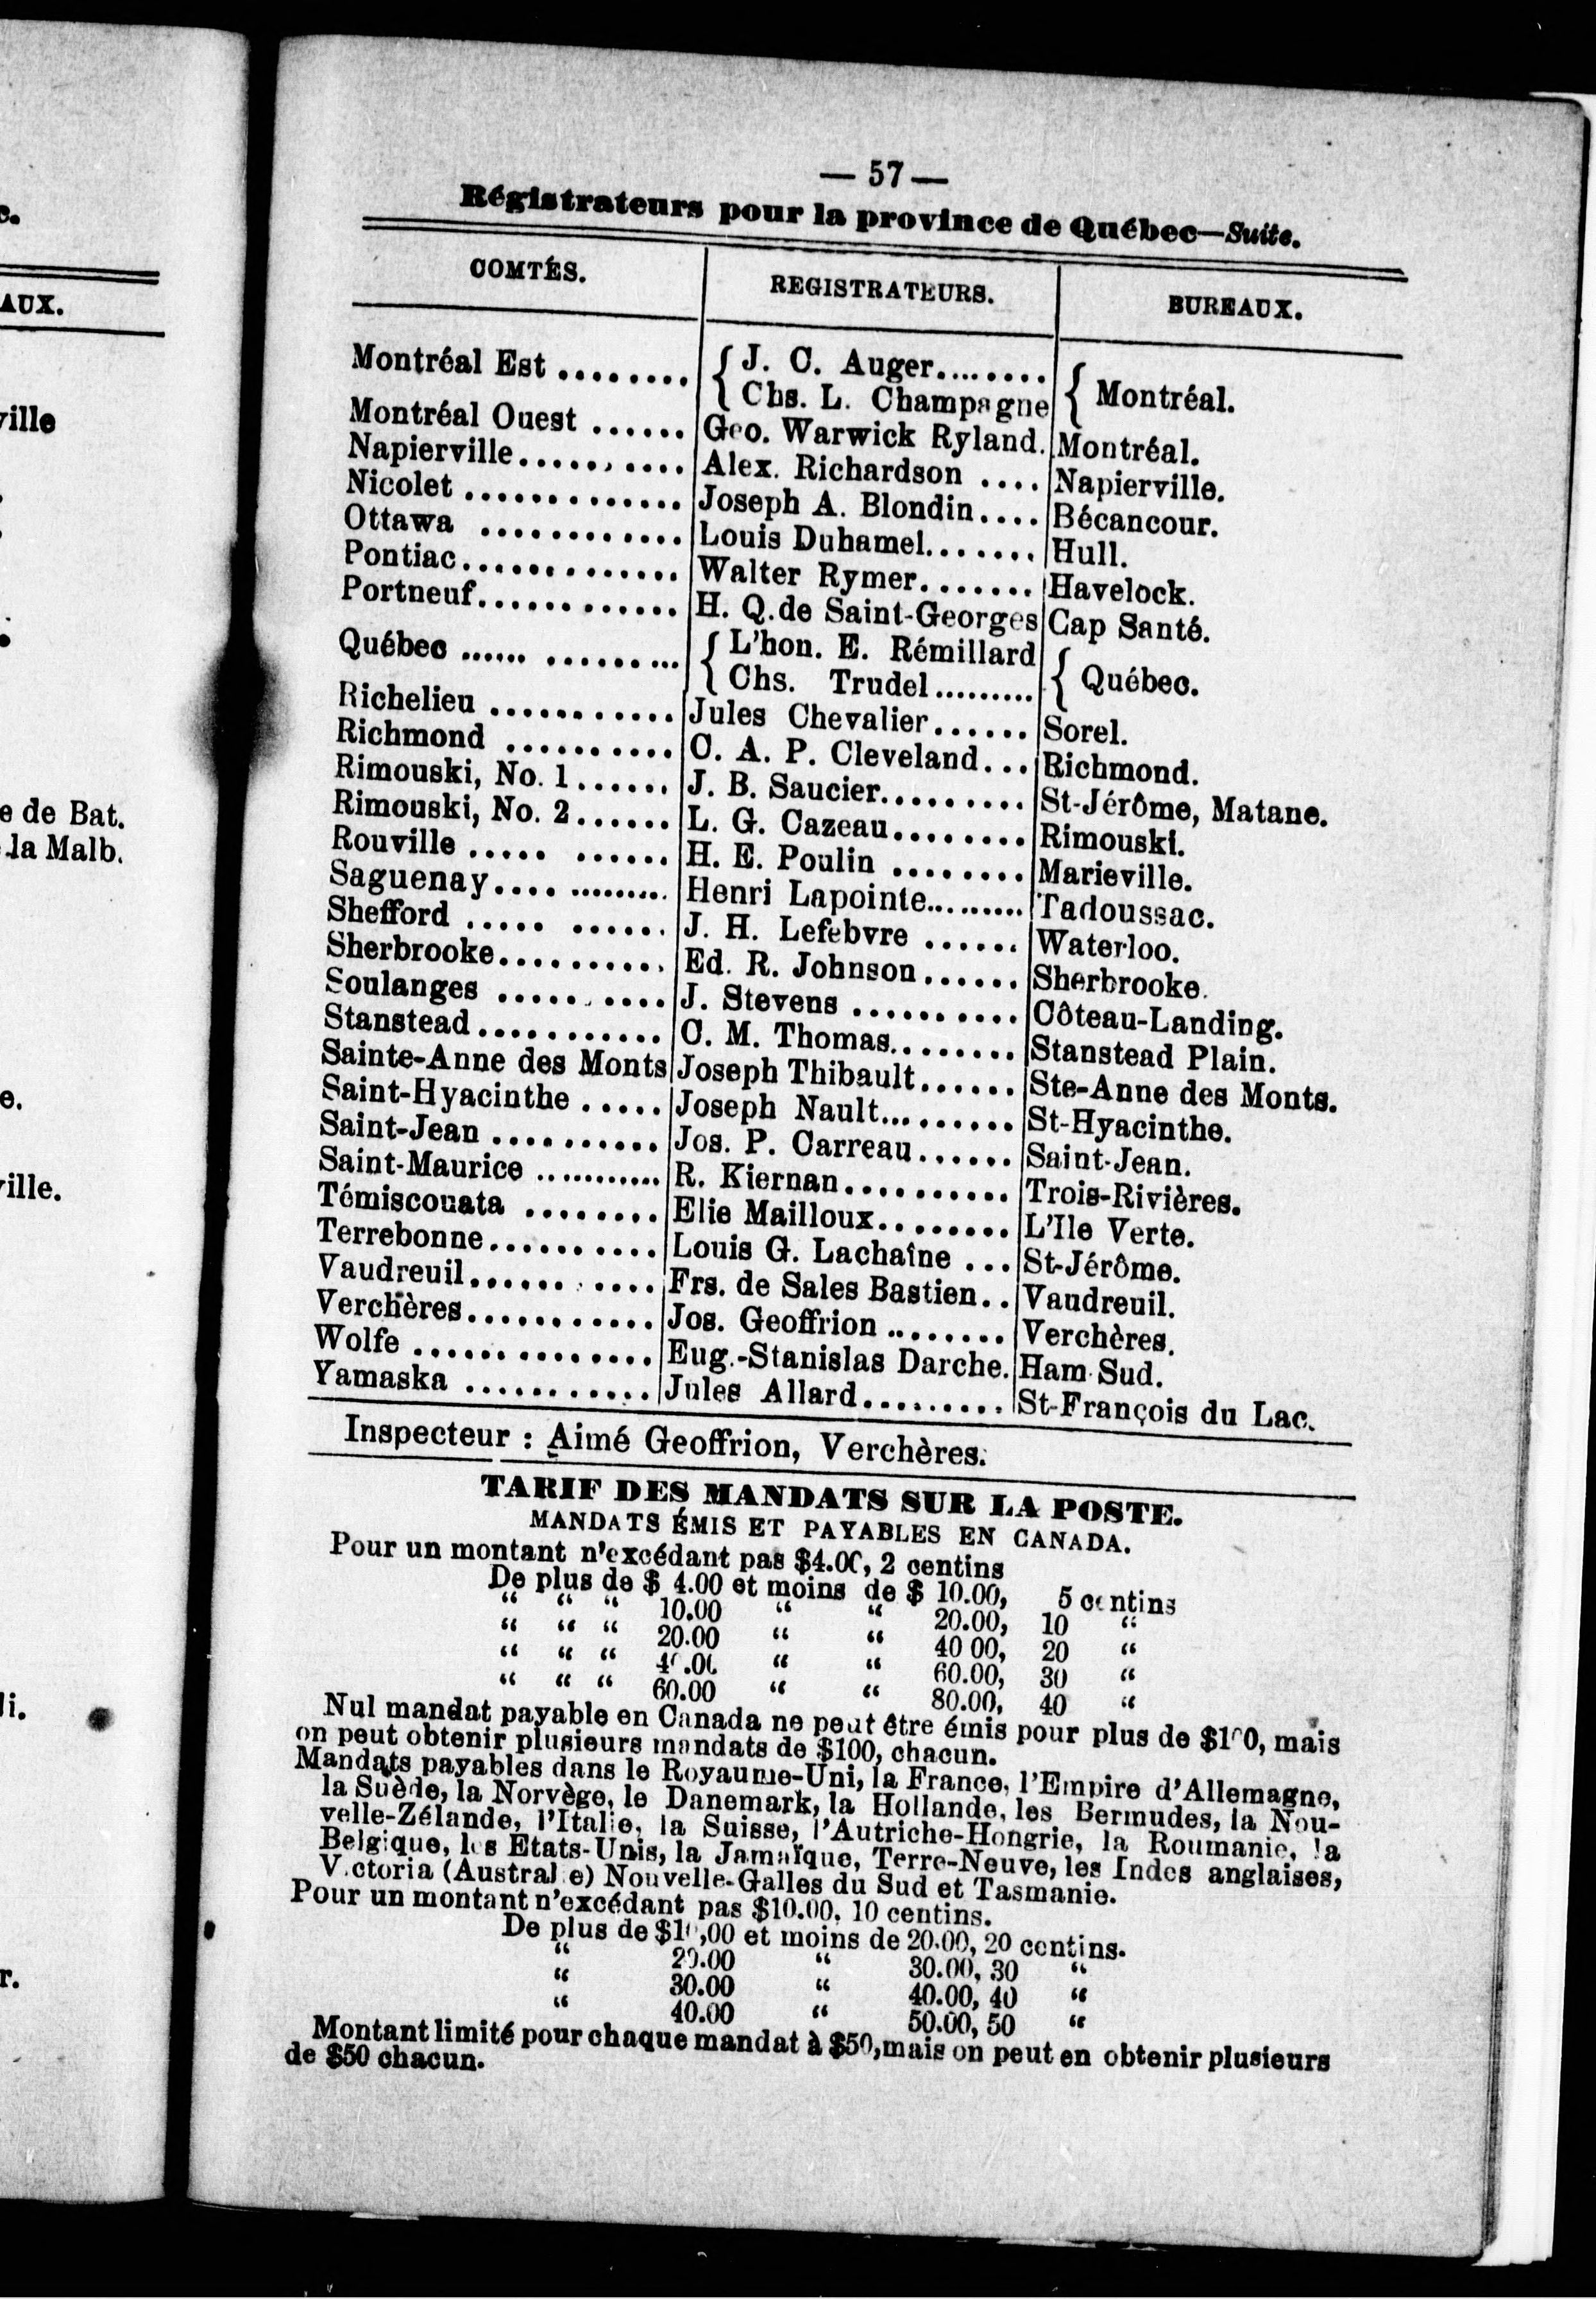 — 57 —
Régistrateurs pour la province de Québec—Suite.
COMTÉS. REGISTRATEURS. BUREAUX.
Montréal Est ........ { J. C. Auger........ { Montréal.
Chs. L. Champagne
Montréal Ouest ...... Geo. Warwick Ryland. Montréal.
Napierville.......... Alex. Richardson .... Napierville.
Nicolet ............. Joseph A. Blondin.... Bécancour.
Ottawa ............ Louis Duhamel....... Hull.
Pontiac............. Walter Rymer....... Havelock.
Portneuf............ H. Q. de Saint-Georges Cap Santé.
Québec ...... ......... { L'hon. E. Rémillard { Québec.
Chs. Trudel.........
Richelieu ........... Jules Chevalier...... Sorel.
Richmond .......... C. A. P. Cleveland... Richmond.
Rimouski, No. 1...... J. B. Saucier......... St-Jérôme, Matane.
Rimouski, No. 2...... L. G. Cazeau........ Rimouski.
Rouville ..... ...... H. E. Poulin ........ Marieville.
Saguenay.... ......... Henri Lapointe......... Tadoussac.
Shefford ..... ...... J. H. Lefebvre ...... Waterloo.
Sherbrooke.......... Ed. R. Johnson...... Sherbrooke.
Soulanges .......... J. Stevens .......... Côteau-Landing.
Stanstead........... C. M. Thomas........ Stanstead Plain.
Sainte-Anne des Monts Joseph Thibault...... Ste-Anne des Monts.
Saint-Hyacinthe ..... Joseph Nault......... St-Hyacinthe.
Saint-Jean .......... Jos. P. Carreau...... Saint-Jean.
Saint-Maurice ........... R. Kiernan.......... Trois-Rivières.
Témiscouata ........ Elie Mailloux........ L'Ile Verte.
Terrebonne.......... Louis G. Lachaîne ... St-Jérôme.
Vaudreuil...... .... Frs. de Sales Bastien.. Vaudreuil.
Verchères........... Jos. Geoffrion ........ Verchères.
Wolfe .............. Eug.-Stanislas Darche. Ham Sud.
Yamaska ........... Jules Allard......... St-François du Lac.
Inspecteur : Aimé Geoffrion, Verchères.
TARIF DES MANDATS SUR LA POSTE.
MANDATS ÉMIS ET PAYABLES EN CANADA.
Pour un montant n'excédant pas $4.00, 2 centins
De plus de $ 4.00 et moins de $ 10.00, 5 centins
“ “ “ 10.00 “ “ 20.00, 10 “
“ “ “ 20.00 “ “ 40 00, 20 “
“ “ “ 40.00 “ “ 60.00, 30 “
“ “ “ 60.00 “ “ 80.00, 40 “
Nul mandat payable en Canada ne peut être émis pour plus de $100, mais
on peut obtenir plusieurs mandats de $100, chacun.
Mandats payables dans le Royaume-Uni, la France, l'Empire d'Allemagne,
la Suède, la Norvège, le Danemark, la Hollande, les Bermudes, la Nou-
velle-Zélande, l'Italie, la Suisse, l'Autriche-Hongrie, la Roumanie, la
Belgique, les Etats-Unis, la Jamaïque, Terre-Neuve, les Indes anglaises,
Victoria (Australie) Nouvelle-Galles du Sud et Tasmanie.
Pour un montant n'excédant pas $10.00, 10 centins.
De plus de $10,00 et moins de 20.00, 20 centins.
“ 20.00 “ 30.00, 30 “
“ 30.00 “ 40.00, 40 “
“ 40.00 “ 50.00, 50 “
Montant limité pour chaque mandat à $50, mais on peut en obtenir plusieurs
de $50 chacun.